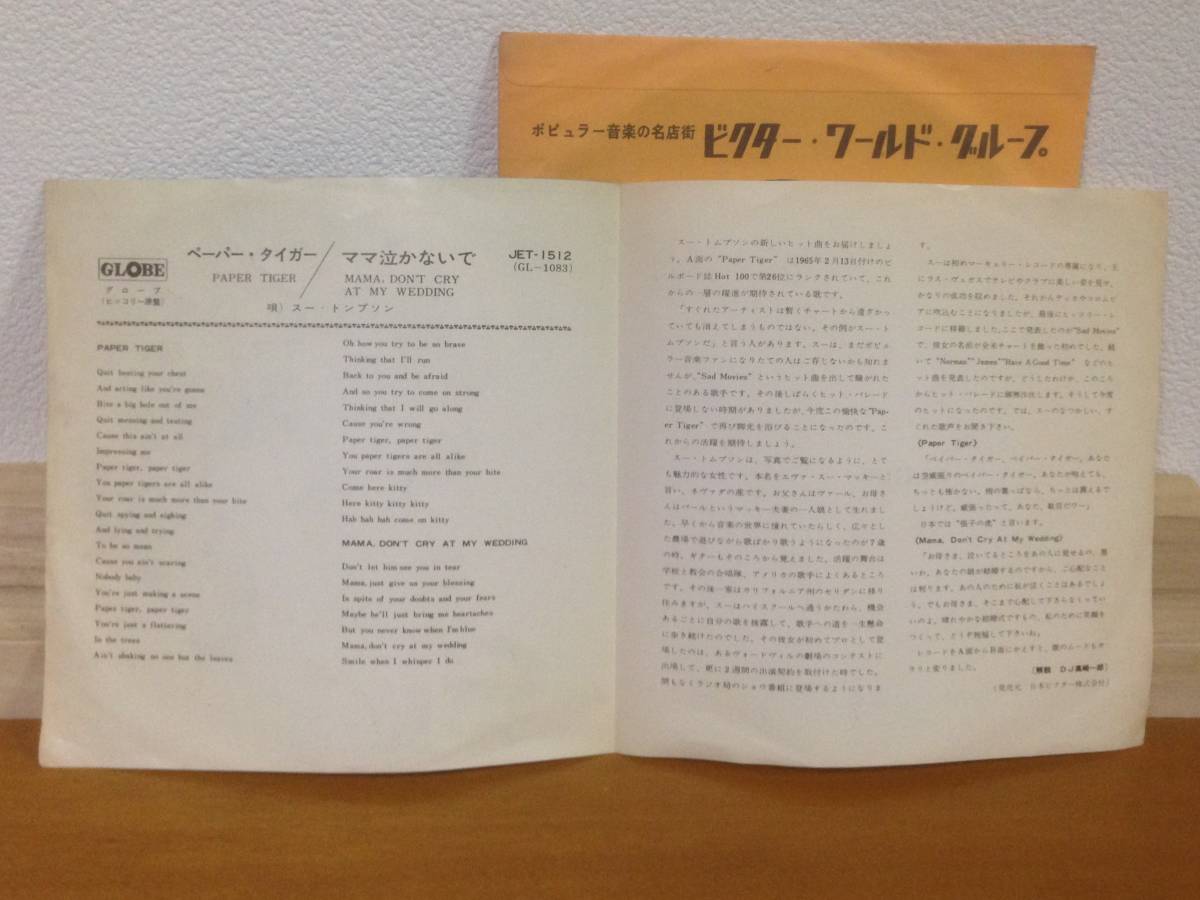 ポピュラー音楽の名店街 ビクター・ワールド・グループ
GLOBE
グローブ
(ヒッコリー原盤)
ペーパー・タイガー/ママ泣かないで
PAPER TIGER
MAMA, DON'T CRY
AT MY WEDDING
唄) スー・トンプソン
JET-1512
(GL-1083)
PAPER TIGER
Quit beating your chest
And acting like you're gonna
Bite a big hole out of me
Quit messing and testing
Cause this ain't at all
Impressing me
Paper tiger, paper tiger
You paper tigers are all alike
Your roar is much more than your bite
Quit spying and sighing
And lying and trying
To be so mean
Cause you ain't scaring
Nobody baby
You're just making a scene
Paper tiger, paper tiger
You're just a flattering
In the trees
Ain't shaking no one but the leaves
Oh how you try to be so brave
Thinking that I'll run
Back to you and be afraid
And so you try to come on strong
Thinking that I will go along
Cause you're wrong
Paper tiger, paper tiger
You paper tigers are all alike
Your roar is much more than your bite
Come here kitty
Here kitty kitty kitty
Hah hah hah come on kitty
MAMA, DON'T CRY AT MY WEDDING
Don't let him see you in tear
Mama, just give us your blessing
In spite of your doubts and your fears
Maybe he'll just bring me heartaches
But you never know when I'm blue
Mama, don't cry at my wedding
Smile when I whisper I do
スー・トムプソンの新しいヒット曲をお届けしましょ
う。A面の"Paper Tiger"は1965年2月13日付けのビ
ルボード誌Hot 100で第26位にランクされていて、これ
からの一層の躍進が期待されている歌です。
「すぐれたアーティストは暫くチャートから遠ざかっ
ていても消えてしまうものではない。その例がスー・ト
ムプソンだ」と言う人があります。スーは、まだポピュ
ラー音楽ファンになりたての人はご存じないかも知れま
せんが、"Sad Movies"というヒット曲を出して騒がれた
ことのある歌手です。その後しばらくヒット・パレード
に登場しない時期がありましたが、今度この愉快な"Pap-
er Tiger"で再び脚光を浴びることになったのです。こ
れからの活躍を期待しましょう。
スー・トムプソンは、写真でご覧になるように、とて
も魅力的な女性です。本名をエヴァ・スー・マッキーと
言い、ネヴァダの産です。お父さんはヴァール、お母さ
んはパールというマッキー夫妻の一人娘として生れまし
た。早くから音楽の世界に憧れていたらしく、広々とし
た農場で遊びながら歌ばかり歌うようになったのが7歳
の時、ギターもそのころから覚えました。活躍の舞台は
学校と教会の合唱隊、アメリカの歌手によくあるところ
です。その後一家はカリフォルニア州のセリダンに移り
住みますが、スーはハイスクールへ通うかたわら、機会
あるごとに自分の歌を披露して、歌手への道を一生懸命
に歩き続けたのでした。その彼女が初めてプロとして登
場したのは、あるヴォードヴィルの劇場のコンテストに
出場して、更に2週間の出演契約を取付けた時でした。
間もなくラジオ局のショウ番組に登場するようになりま
す。
スーは初めマーキュリー・レコードの専属になり、主
にラス・ヴェガスでテレビやクラブに美しい姿を見せ、
かなりの成功を収めました。それからデッカやコロムビ
アに吹込むことになりましたが、最後にヒッコリー・レ
コードに移籍しました。ここで発表したのが"Sad Movies"
で、彼女の名前が全米チャートを飾った初めてでした。続
いて"Norman""James""Have A Good Time"などのヒ
ット曲を発表したのですが、どうしたわけか、このころ
からヒット・パレードに
のヒットになったのです。では、スーのなつかしい、す
ぐれた歌声をお聞き下さい。
《Paper Tiger》
「ペイパー・タイガー、ペイパー・タイガー、あなた
は空威張りのペイパー・タイガー。あなたが吠えても、
ちっとも怖かない。樹の葉っぱなら、ちっとは震えるで
しょうけど。威張ったって、あなた、駄目だワー」
日本では"張子の虎"と言います。
《Mama, Don't Cry At My Wedding》
「お母さま、泣いてるところをあの人に見せるの、悪
いわ。あなたの娘が結婚するのですから、ご心配なこと
は判ります。あの人のために私が泣くことはあるでしょ
う。でもお母さま、そこまで心配して下さらなくってい
いのよ。晴れやかな結婚式ですもの、私のために笑顔を
つくって、どうぞ祝福して下さいね」
レコードをA面からB面にかえすと、歌のムードもガ
ラリと変りました。
(解説 DJ高崎一郎)
(発売元 日本ビクター株式会社)